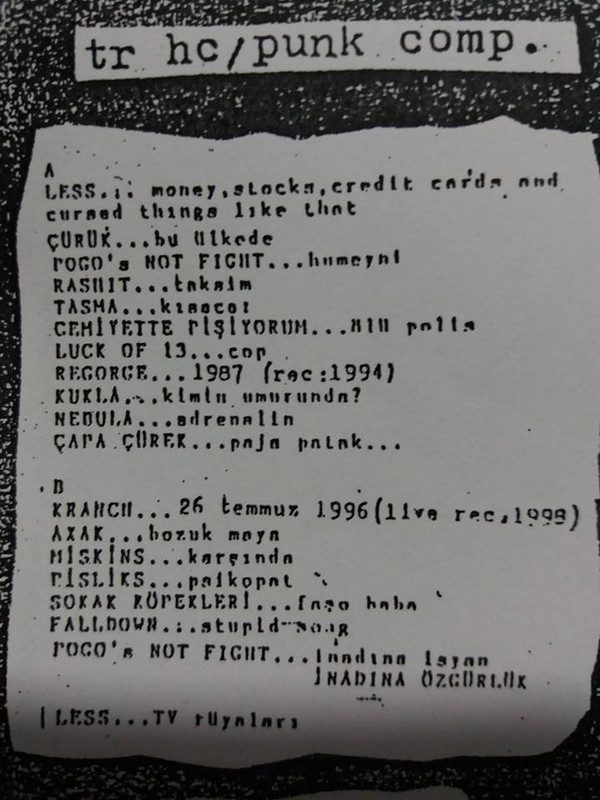 tr hc/punk comp.
A
LESS... money,stocks,credit cards and
cursed things like that
ÇÜRÜK...bu ülkede
POGO's NOT FIGHT...humeyni
RASHIT...taksim
TASMA...kısacası
CEMİYETTE PİŞİYORUM...
LUCK OF 13...cop
REGORGE...1987 (rec:1994)
KUKLA...kimin umurunda?
NEBULA...adrenalin
ÇAPA ÇÜREK...
B
KRANCH...26 temmuz 1996(live rec.1998)
AXAK...bozuk maya
MİSKİNS...karşında
PİSLİKS...psikopat
SOKAK KÖPEKLERİ...faşo baba
FALLDOWN...stupid song
POGO's NOT FIGHT...inadına isyan
İNADINA ÖZGÜRLÜK
LESS...TV rüyaları